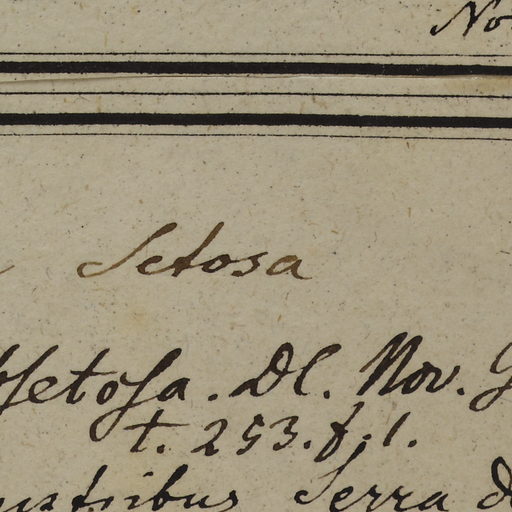 No
Setosa
setosa. Dl. Nov. G
t. 253. f. 1.
ustribus Serra d